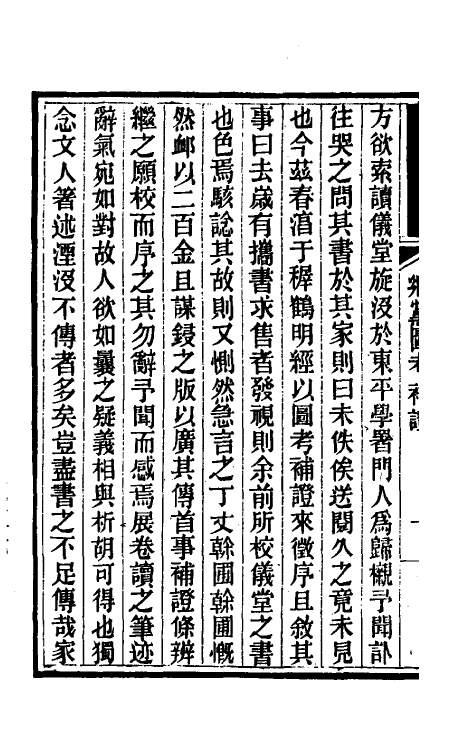 方欲索讀儀堂旋沒於東平學署門人為歸櫬予聞訃
往哭之問其書於其家則曰未佚俟送閱久之竟未見
也今茲春淯于穉鶴明經以圖考補證來徵序且敘其
事曰去歲有攜書求售者發視則余前所校儀堂之書
也色焉駭諗其故則又惻然急言之丁丈榦圃榦圃慨
然郵以二百金且謀鋟之版以廣其傳首事補證條辨
繼之願校而序之其勿辭予聞而感焉展卷讀之筆迹
辭氣宛如對故人欲如曩之疑義相與析胡可得也獨
念文人著述湮沒不傳者多矣豈盡書之不足傳哉家
鄉黨圖考補證
一